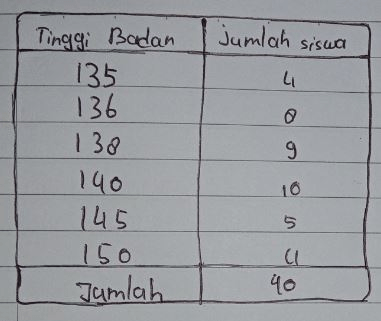 Tinggi Badan Jumlah siswa
135 4
136 8
138 9
140 10
145 5
150 4
Jumlah 40